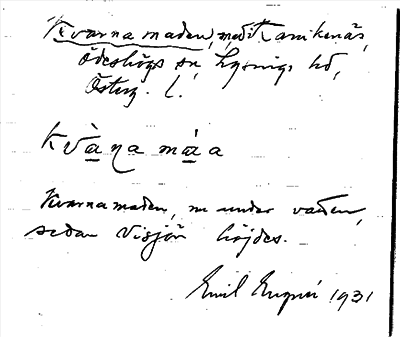 Kvarnamaden, med Kanikenäs,
Ödeshögs sn, Lysings hd,
Österg. l.
kvàna máa
Kvarnamaden, nu under vatten,
sedan Visjön höjdes.
Emil 1931